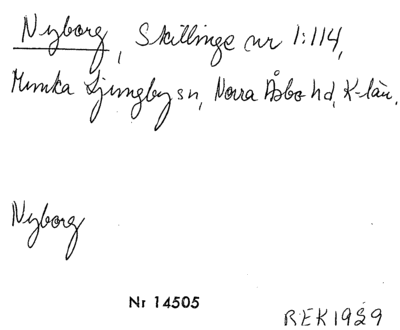 Nyborg, Skillinge nr 1:114,
Munka Ljungby sn, Norra Åsbo hd, K-län.
Nyborg
Nr 14505
REK1929